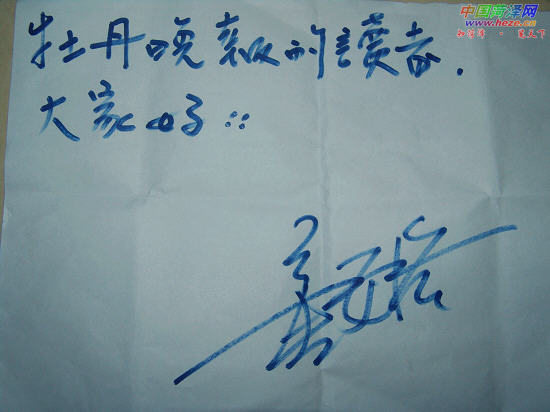 中国菏泽网
www.heze.cn
牡丹晚報的讀者，
大家好！！